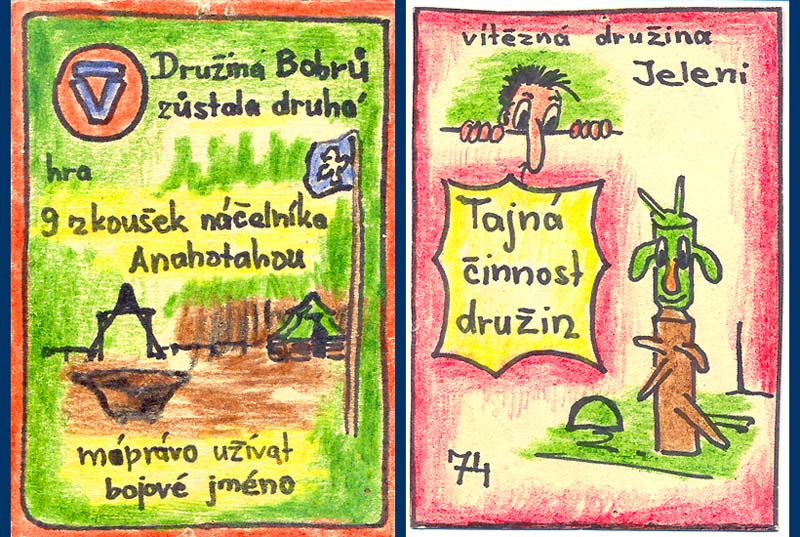 Družina Bobrů
zůstala druhá
hra
9 zkoušek náčelníka
Anahotahou
má právo užívat
bojové jméno
vítězná družina
Jeleni
Tajná
činnost
družin
74